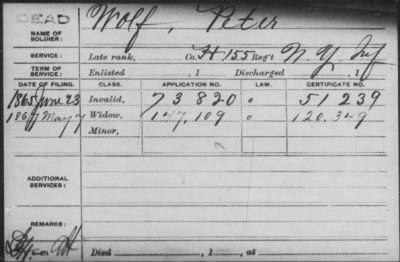 DEAD
NAME OF SOLDIER: Wolf, Peter
SERVICE: Late rank, Co. H 155 Reg't N.Y. Inf
TERM OF SERVICE: Enlisted , 1 Discharged , 1
DATE OF FILING. CLASS. APPLICATION NO. LAW. CERTIFICATE NO.
1865 June 23 Invalid, 73 820 51 239
1867 May 7 Widow, 147,109 120.349
Minor,
ADDITIONAL SERVICES:
REMARKS:
Died , 1 , at